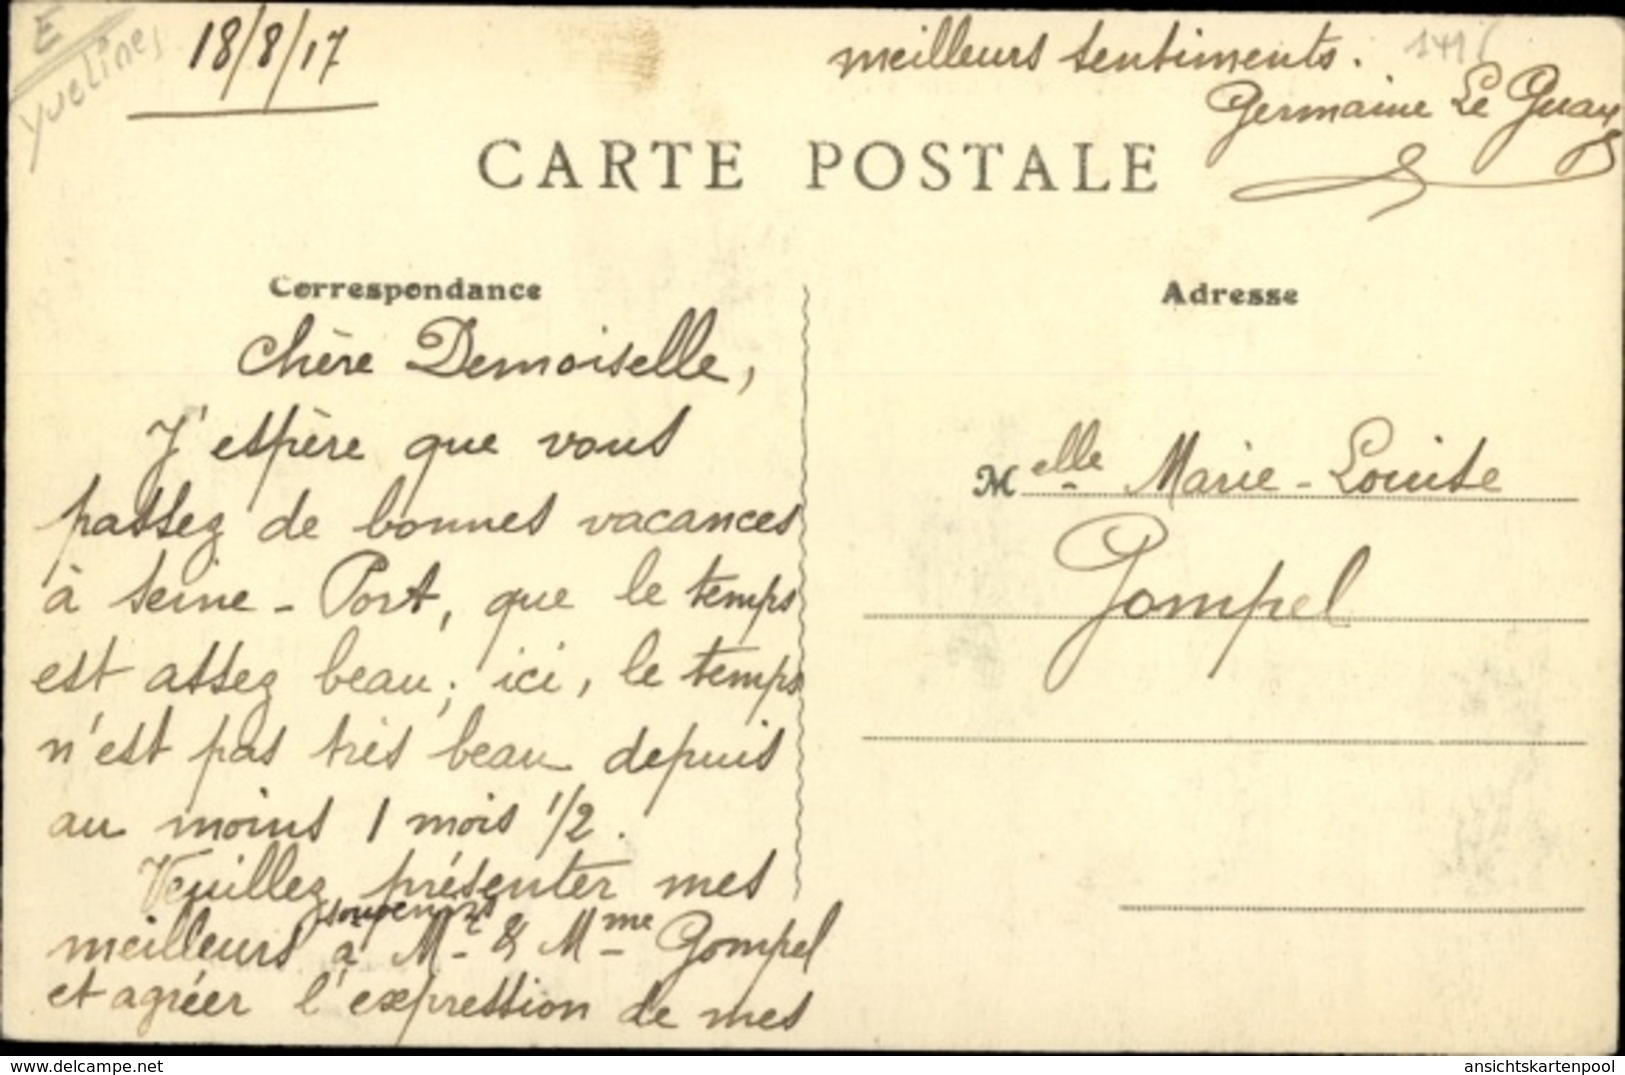 E
Yvelines
18/8/17
meilleurs sentiments.
Germaine Le Guay
CARTE POSTALE
Correspondance
Adresse
Chère Demoiselle,
J'espère que vous
passez de bonnes vacances
à Seine-Port, que le temps
est assez beau; ici, le temps
n'est pas très beau depuis
au moins 1 mois 1/2.
Veuillez présenter mes
souvenirs
meilleurs à Mr & Mme Gompel
et agréer l'expression de mes
Melle Marie-Louise
Gompel
www.delcampe.net
ansichtskartenpool